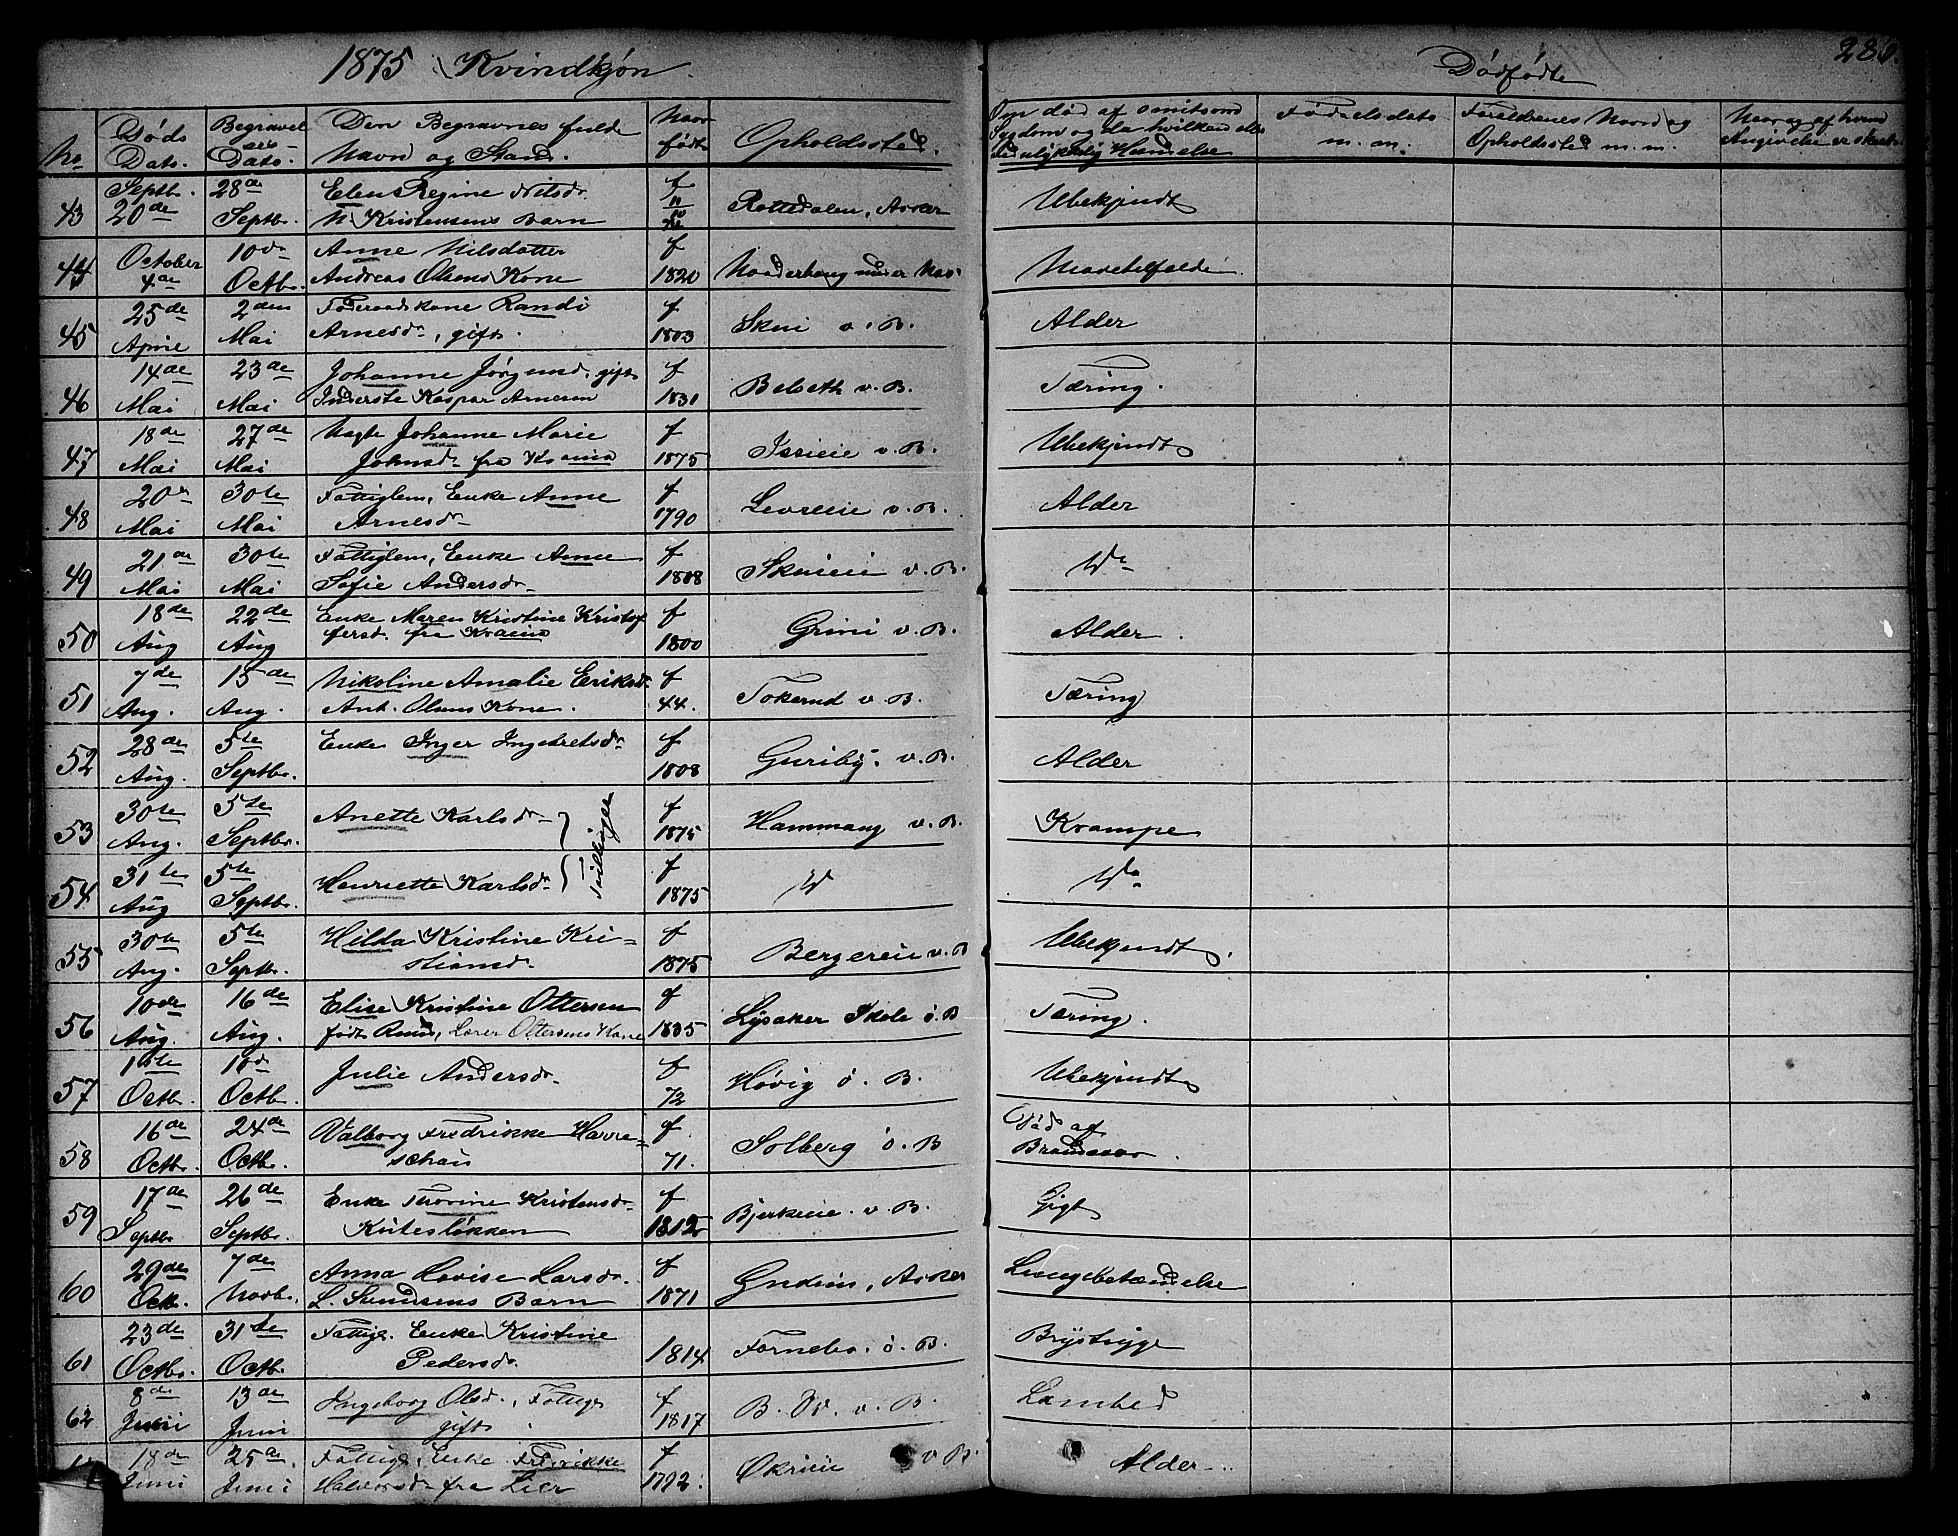 1875 Kvindkjøn. Dødfødte 286.
No Døds Dato. Begravelses Dato. Den Begravnes fulde Navn og Stand. Naar født Opholdssted. Om død af smitsom Sygdom og da hvilken eller ved ulykkelig Hændelse Fødselsdato m. m. Forældrenes Navn og Opholdssted m. m. Naar og af hvem Angivelse er skeet.
43 Septbr. 20de 28de Septbr. Elen Regine Nilsdr N. Kristensens Barn f Rottedalen, Asker Ubekjendt
44 October 4de 10de Octbr. Anne Nilsdatter Andreas Olsens Kone f 1820
45 25de April 2den Mai Føderaadskone Randi Arnesdr, gift. f 1803 Skui v. B. Alder
46 14de Mai 23de Mai Johanne Jørgensd. gift Inderste Kaspar Arnesen f 1831 Belseth v. B. Tæring.
47 18de Mai 27de Mai Ungte Johanne Marie Johnsdr fra Krania f 1875 Issieie v. B. Ubekjendt
48 20de Mai 30te Mai Fattiglem, Enke Anne Arnesdr f 1790 Levreeie v. B. Alder
49 21de Mai 30te Mai Fattiglem, Enke Anne Sofie Andersdr f 1808 Skuieie v. B. Do
50 18de Aug 22de Aug Enke Maren Kristine Kristoffersd. fra Krania f 1800 Grini v. B. Alder.
51 7de Aug. 15de Aug. Nikoline Amalie Eriksdr Ant. Olsens Kone. f 44. Tokerud v. B. Tæring
52 28de Aug. 5te Septbr. Enke Inger Ingebretsdr f 1808 Guriby. v. B. Alder
53 30te Aug. 5te Septbr. Anette Karlsdr Tvillinger f 1875 Hammang v. B. Krampe
54 31te Aug 5te Septbr. Henriette Karlsdr f 1875 Do Do
55 30te Aug. 5te Septbr. Hilda Kristine Kristiansd. f 1875 Bergereie v. B Ubekjendt.
56 10de Aug. 16de Aug. Elise Kristine Ottersen født Lærer Ottersens Kone f 1835 Lysaker Skole ø. B Tæring.
57 Octbr. 10de Octbr. Julie Andersdr. f 72 Høvig ø. B. Ubekjendt
58 16de Octbr. 24de Octbr. Valborg Fredrikke f 71. Solberg ø. B Død af Brandsaar.
59 17de Septbr 26de Septbr Enke Thorine Kristensdr Kuteslökken f 1812 Bjerkeie. v. B. Gigt
60 29de Octb. 7de Novbr. Anna Lovise Larsdr. L. Barn f 1871 Asker Lungebetændelse
61 23de Octbr. 31te Octbr. Fattigl. Enke Kristine Pedersdr. 1814 Fornebo. ø. B. Brystsyge
62 8de Juni 13de Juni Ingeborg Olsd., Fattigl gift. f 1817 B. V. v. B. Lamhed
18de Juni 25de Juni Fattigl. Enke Fredrikke Halvorsdr fra Lier f 1792. Økrieie v B. Alder.